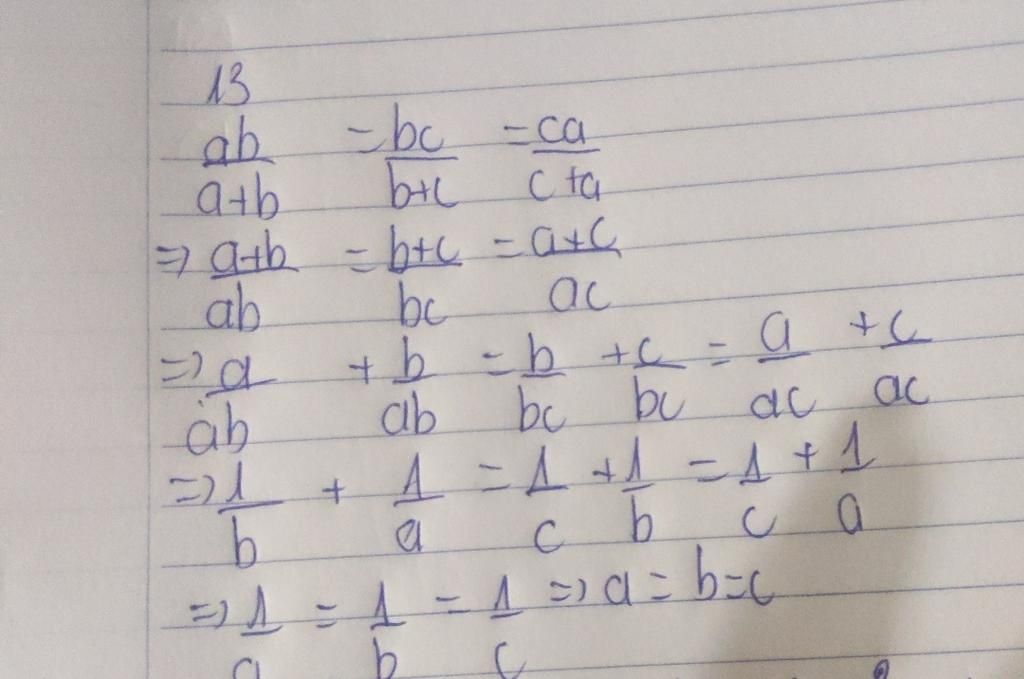 13
ab/a+b = bc/b+c = ca/c+a
=> a+b/ab = b+c/bc = a+c/ac
=> a/ab + b/ab = b/bc + c/bc = a/ac + c/ac
=> 1/b + 1/a = 1/c + 1/b = 1/c + 1/a
=> 1/a = 1/b = 1/c => a = b = c